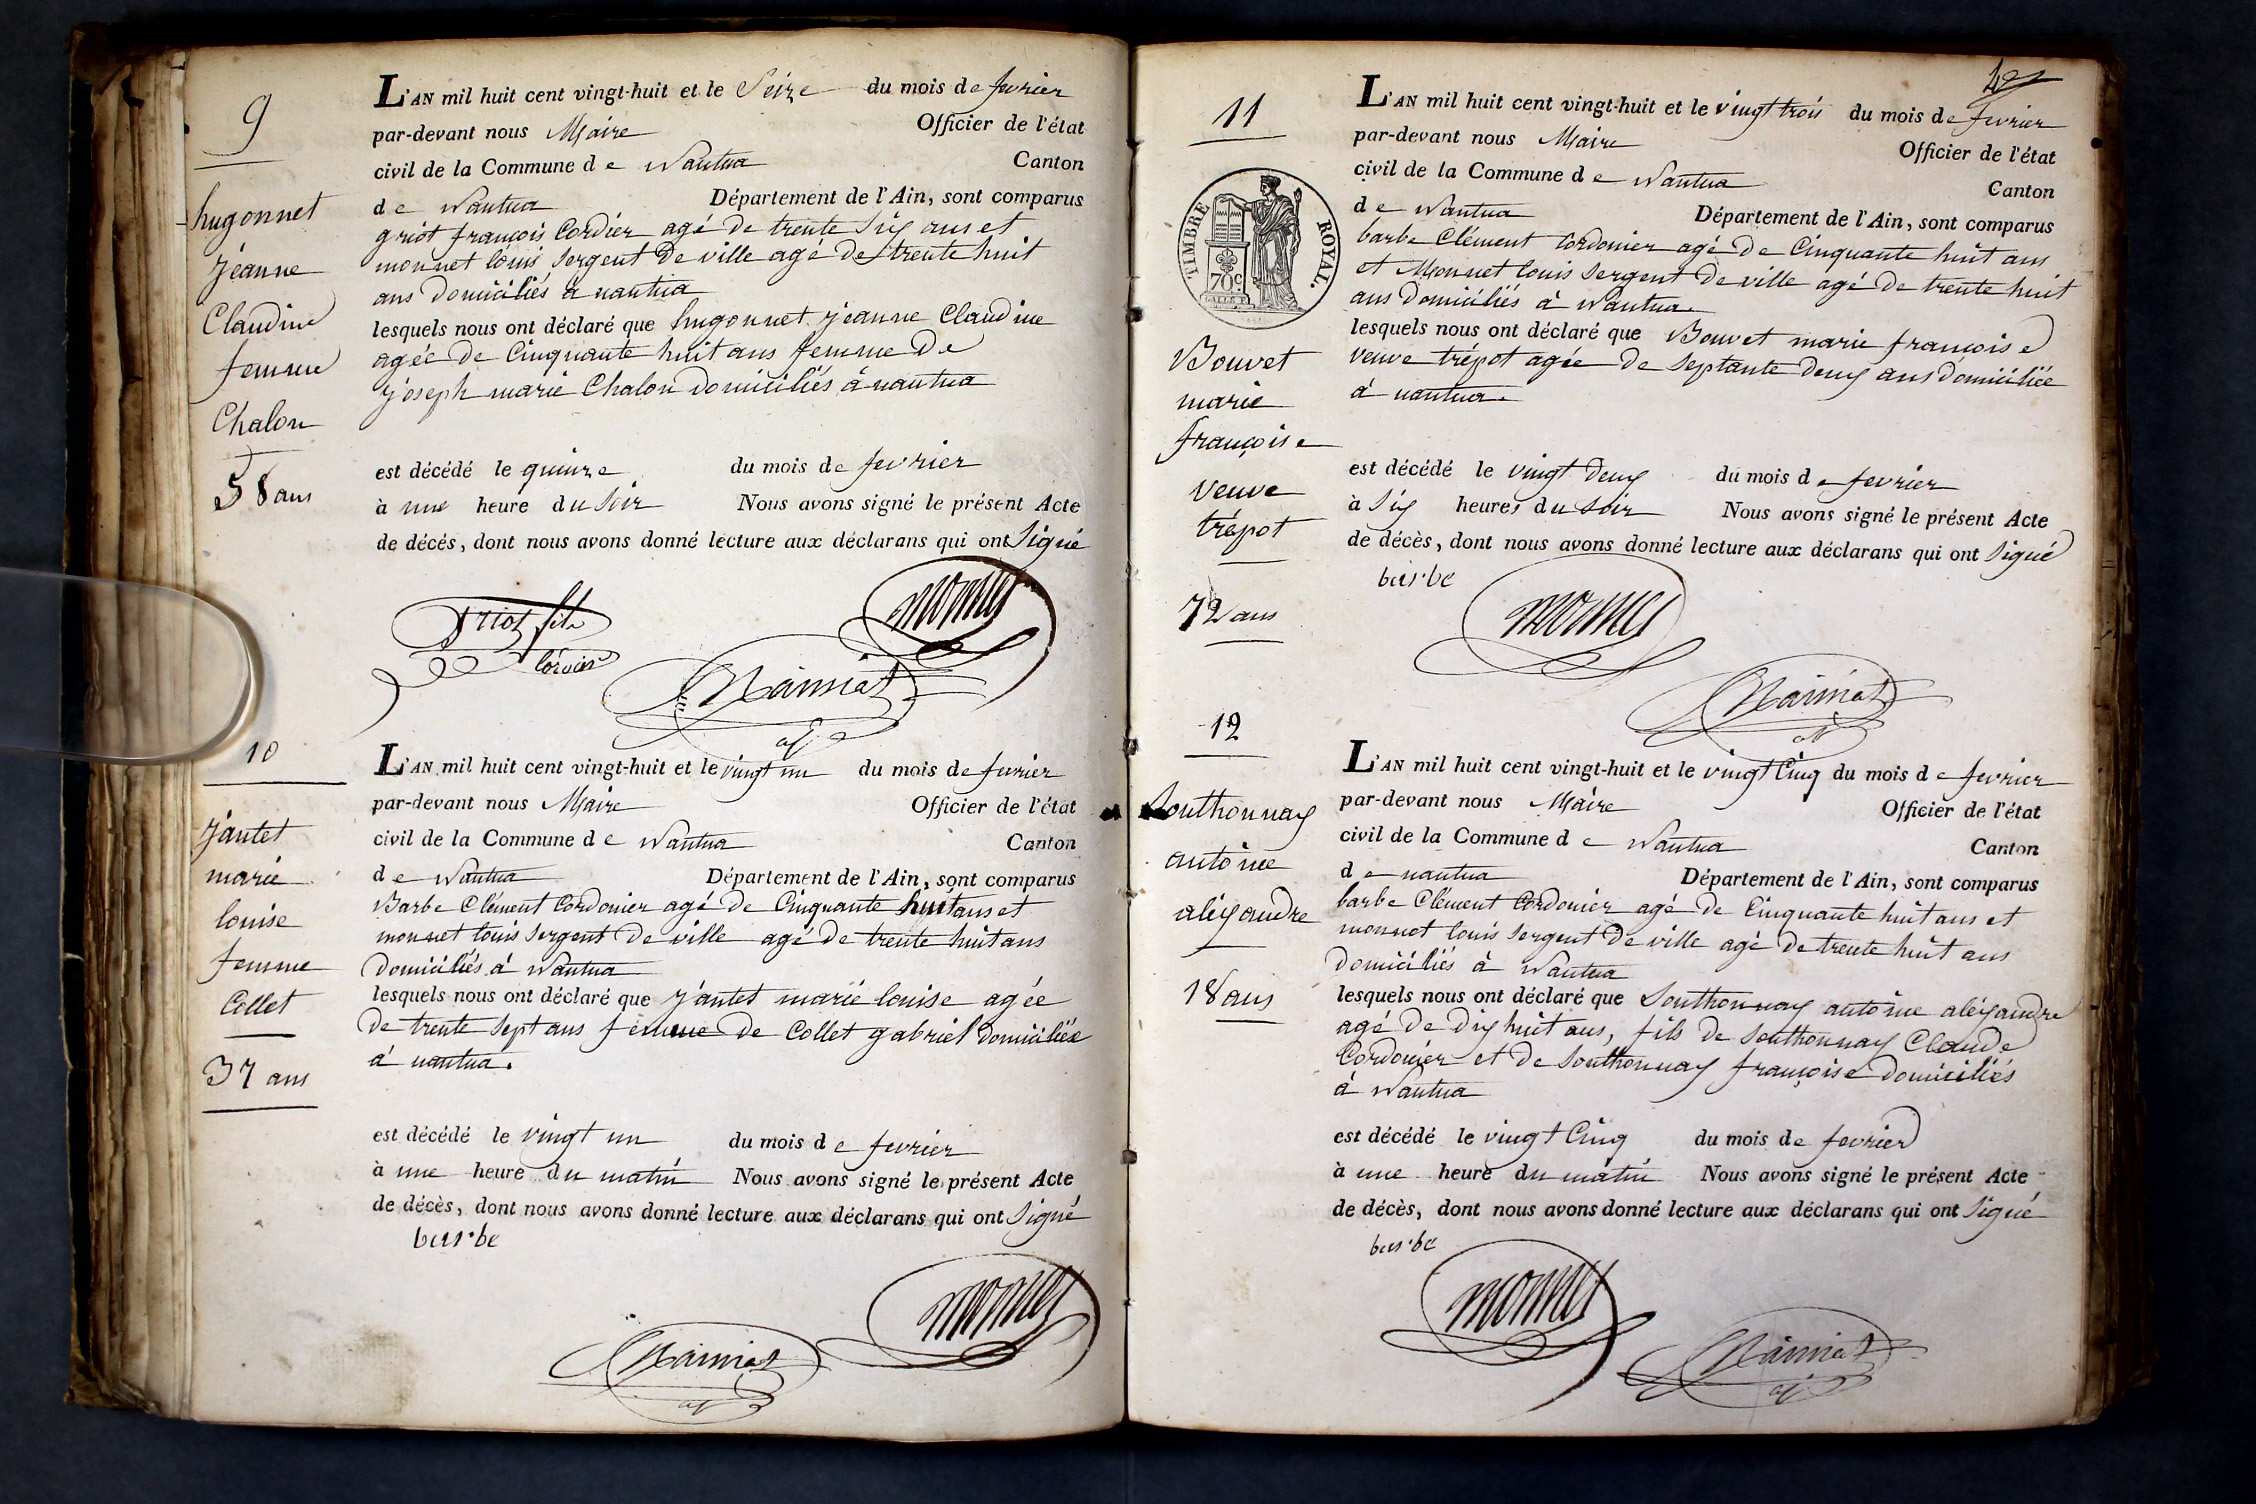 9
hugonnet
jeanne
Claudine
femme
Chalon
58 ans
L'AN mil huit cent vingt-huit et le Seize du mois de fevrier
par-devant nous Maire Officier de l'état
civil de la Commune de Nantua Canton
de Nantua Département de l'Ain, sont comparus
griot françois Cordier agé de trente Six ans et
monnet louis Sergent De ville agé de trente huit
ans Domiciliés à nantua
lesquels nous ont déclaré que hugonnet jeanne Claudine
agée De Cinquante huit ans femme De
joseph marie Chalon Domiciliés à nantua
est décédé le quinze du mois de fevrier
à une heure du Soir Nous avons signé le présent Acte
de décés, dont nous avons donné lecture aux déclarans qui ont Signé
griot fils
Cordier
monnet
10
jantet
marie
louise
femme
Collet
37 ans
L'AN mil huit cent vingt-huit et le vingt un du mois de fevrier
par-devant nous Maire Officier de l'état
civil de la Commune de Nantua Canton
de Nantua Département de l'Ain, sont comparus
Barbe Clément Cordonier agé De Cinquante huit ans et
monnet louis Sergent De ville agé de trente huit ans
Domiciliés à Nantua
lesquels nous ont déclaré que jantet marie louise agée
De trente Sept ans femme De Collet gabriel Domiciliée
à nantua.
est décédé le vingt un du mois de fevrier
à une heure du matin Nous avons signé le présent Acte
de décès, dont nous avons donné lecture aux déclarans qui ont Signé
barbe
monnet
11
TIMBRE ROYAL.
70c
Bouvet
marie
françoise
veuve
trépot
72 ans
L'AN mil huit cent vingt-huit et le vingt trois du mois de fevrier
par-devant nous Maire Officier de l'état
civil de la Commune de Nantua Canton
de Nantua Département de l'Ain, sont comparus
barbe Clément Cordonier agé De Cinquante huit ans
et Monnet louis Sergent De ville agé de trente huit
ans Domiciliés à Nantua.
lesquels nous ont déclaré que Bouvet marie françoise
veuve trépot agée De Septante Deux ans Domiciliée
à nantua.
est décédé le vingt Deux du mois de fevrier
à Six heures du Soir Nous avons signé le présent Acte
de décès, dont nous avons donné lecture aux déclarans qui ont Signé
barbe
monnet
12
Southonnax
antoine
aléxandre
18 ans
L'AN mil huit cent vingt-huit et le vingt Cinq du mois de fevrier
par-devant nous Maire Officier de l'état
civil de la Commune de Nantua Canton
de nantua Département de l'Ain, sont comparus
barbe Clément Cordonier agé De Cinquante huit ans et
monnet louis Sergent De ville agé de trente huit ans
Domiciliés à Nantua
lesquels nous ont déclaré que Southonnax antoine aléxandre
agé De Dix huit ans, fils De Southonnax Claude
Cordonier et De Southonnax françoise Domiciliés
à Nantua
est décédé le vingt Cinq du mois de fevrier
à une heure du matin Nous avons signé le présent Acte
de décès, dont nous avons donné lecture aux déclarans qui ont Signé
barbe
monnet